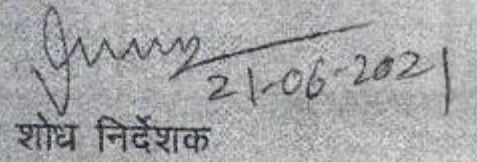 21-06-2021
शोध निर्देशक